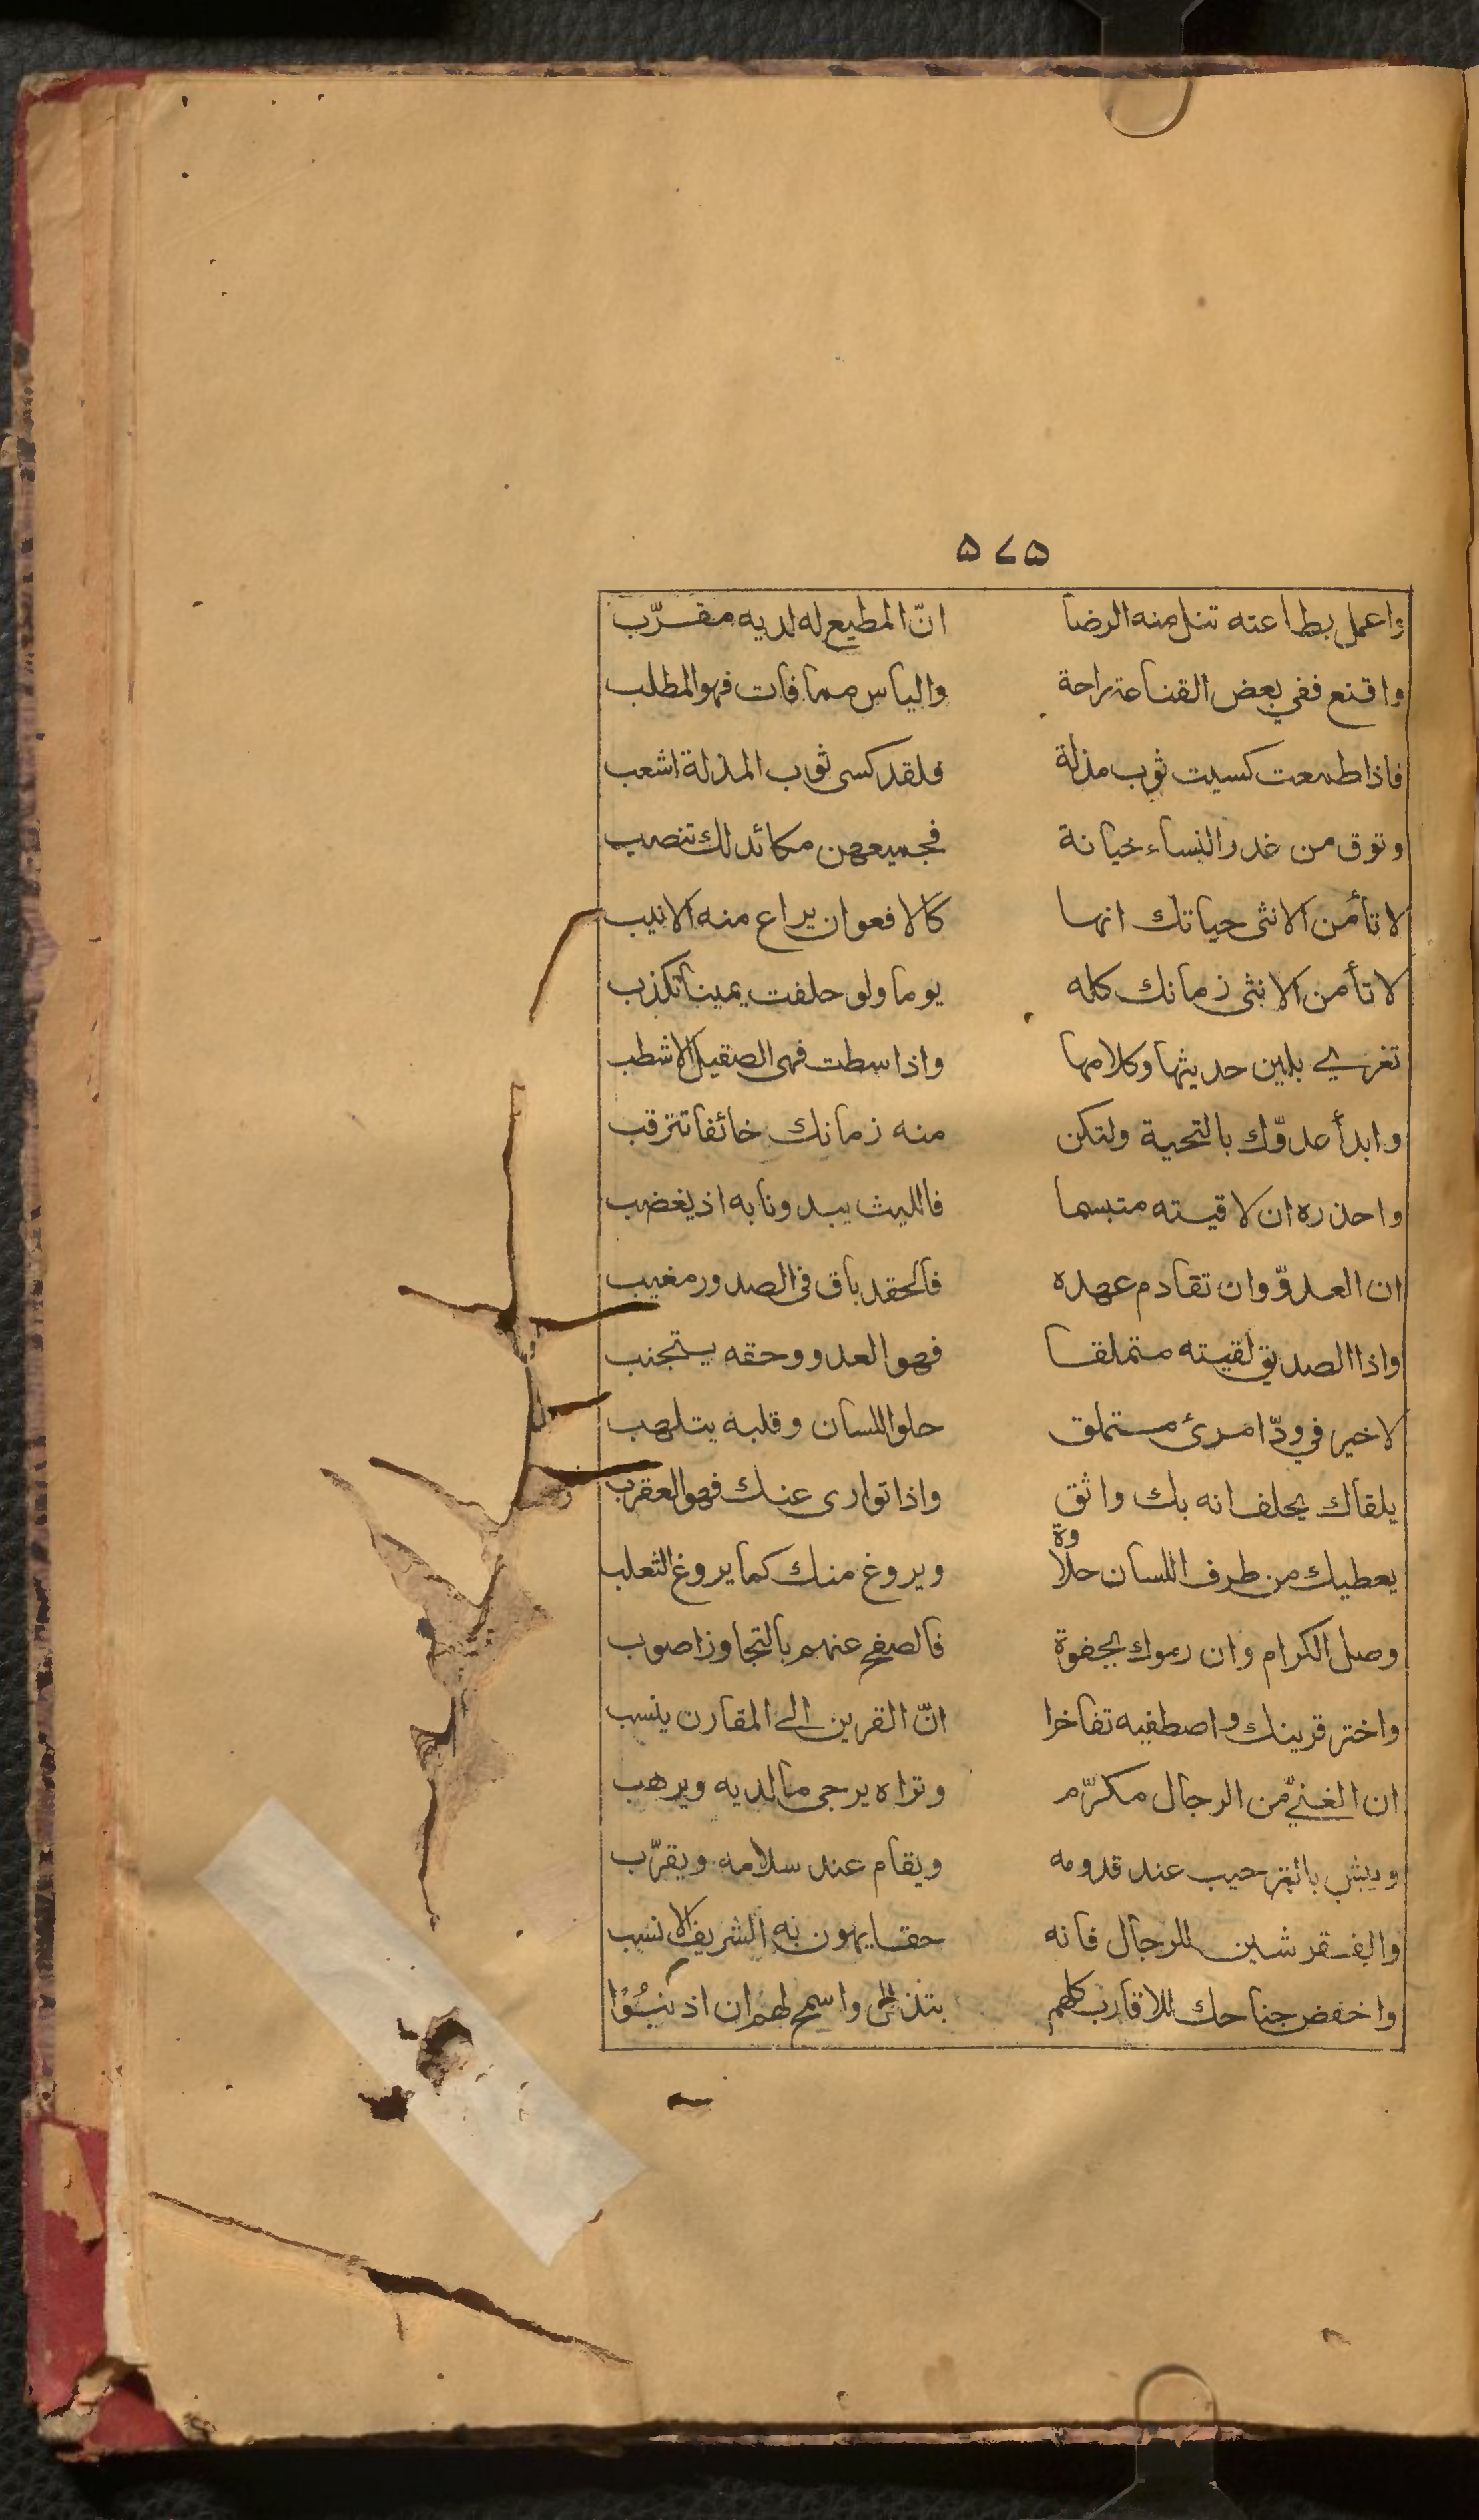 ٥٧٥
واعمل بطاعته تنل منه الرضا انّ المطيع له لديه مقرّب
واقنع ففي بعض القناعة راحة والياس مما فات فهو المطلب
فاذا طمعت كسيت ثوب مذلة فلقد كسى ثوب المذلة اشعب
وتوق من غدر النساء خيانة فجميعهن مكائد لك تنصب
لا تأمن الانثى حياتك انها كالافعوان يراع منه الانيب
لا تأمن الانثى زمانك كله يوما ولو حلفت يمينا تكذب
تغري بلين حديثها وكلامها واذا سطت فهى الصقيل الاشطب
وابدأ عدوّك بالتحية ولتكن منه زمانك خائفا تترقب
واحذره ان لاقيته متبسما فالليث يبدو نابه اذ يغضب
ان العدوّ وان تقادم عهده فالحقد باق فى الصدور مغيب
واذا الصديق لقيته متملقا فهو العدو وحقه يتجنب
لا خير في ودّ امرئ متملق حلو اللسان وقلبه يتلهب
يلقاك يحلف انه بك واثق واذا توارى عنك فهو العقرب
يعطيك من طرف اللسان حلاوة ويروغ منك كما يروغ الثعلب
وصل الكرام وان رموك بجفوة فالصفح عنهم بالتجاوز اصوب
واختر قرينك واصطفيه تفاخرا انّ القرين الى المقارن ينسب
ان الغنيّ من الرجال مكرّم وتراه يرجى ما لديه ويرهب
ويبش بالترحيب عند قدومه ويقام عند سلامه ويقرّب
والفقر شين للرجال فانه حقا يهون به الشريف الانسب
واخفض جناحك للاقارب كلهم بتذلل واسمح لهم ان اذنبُوْا